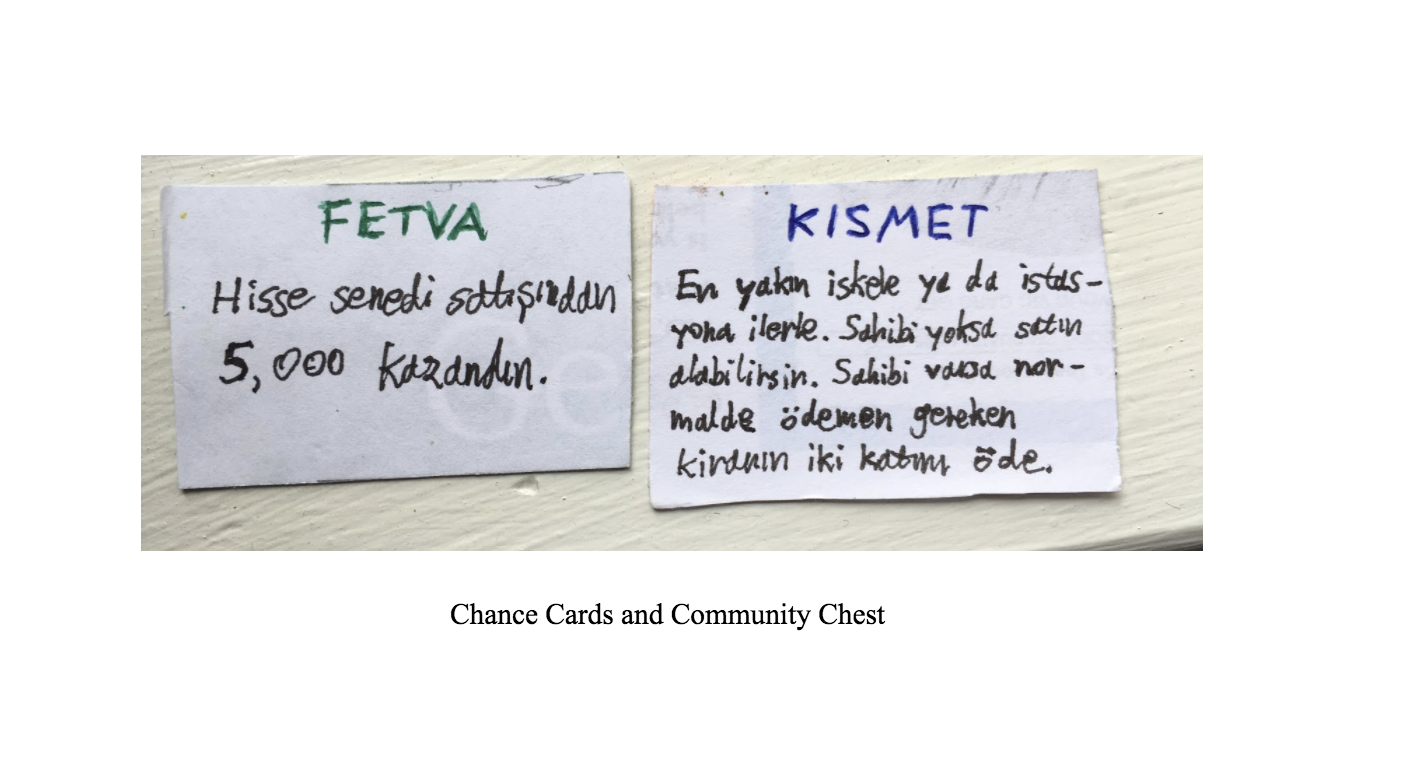 FETVA
Hisse senedi satışından
5,000 kazandın.
KISMET
En yakın iskele ya da istas-
yona ilerle. Sahibi yoksa satın
alabilirsin. Sahibi varsa nor-
malde ödemen gereken
kiranın iki katını öde.
Chance Cards and Community Chest